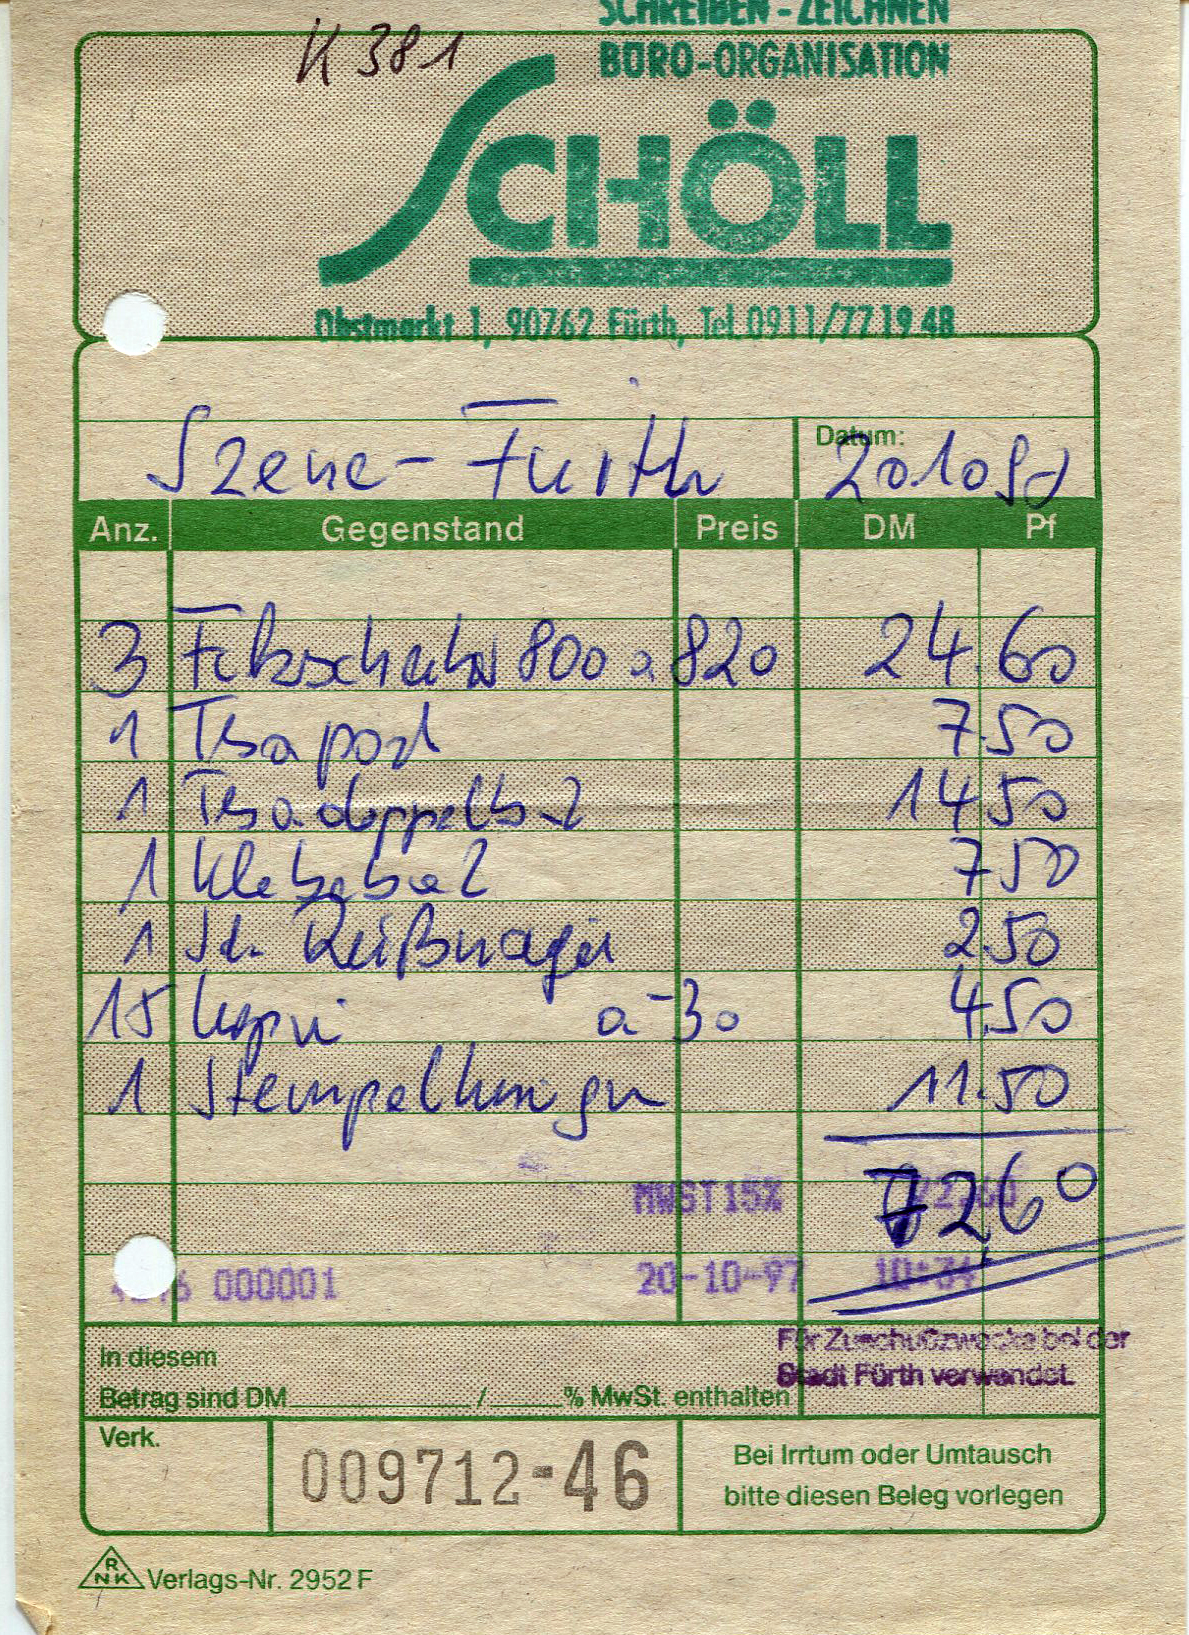 SCHREIBEN - ZEICHNEN
K 381
BÜRO-ORGANISATION
SCHÖLL
Obstmarkt 1, 90762 Fürth, Tel. 0911/77 19 48
Szene - Fürth
Datum: 20 10 97
Anz. Gegenstand Preis DM Pf
3 800 a 820 24.60
1 Tesa 7.50
1 Tesa 14 50
1 7 50
1 Reißnägel 2.50
15 Kopien a -30 4.50
1 Stempelkissen 11.50
MWST15% 72.60
7260
000001 20-10-97 10:34
In diesem
Betrag sind DM / % MwSt. enthalten
Für Zuschußzwecke bei der
Stadt Fürth verwendet.
Verk.
009712-46
Bei Irrtum oder Umtausch
bitte diesen Beleg vorlegen
RNK Verlags-Nr. 2952 F